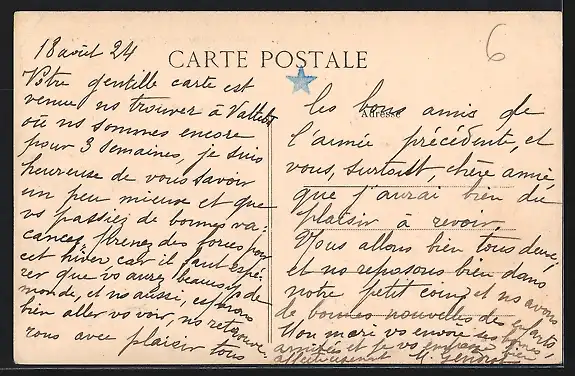 18 août 24
CARTE POSTALE
6
Adresse
Votre gentille carte est
venue ns trouver à
où ns sommes encore
pour 3 semaines, je suis
heureuse de vous savoir
un peu mieux et que
vs passiez de bonnes va-
cances, prenez des forces pour
cet hiver car il faut espé-
rer que vs aurez beaucoup de
monde, et ns aussi, espérons
bien aller vs voir, ns retrouve-
rons avec plaisir tous
les bons amis de
l'année précédente, et
vous, surtout, chère amie,
que j'aurai bien du
plaisir à revoir.
Vous allons bien tous deux,
et ns reposons bien dans
notre petit coin, et ns avons
de bonnes nouvelles des enfants,
Mon mari vs envoie ses bonnes
amitiés et je vs embrasse bien
affectueusement M.